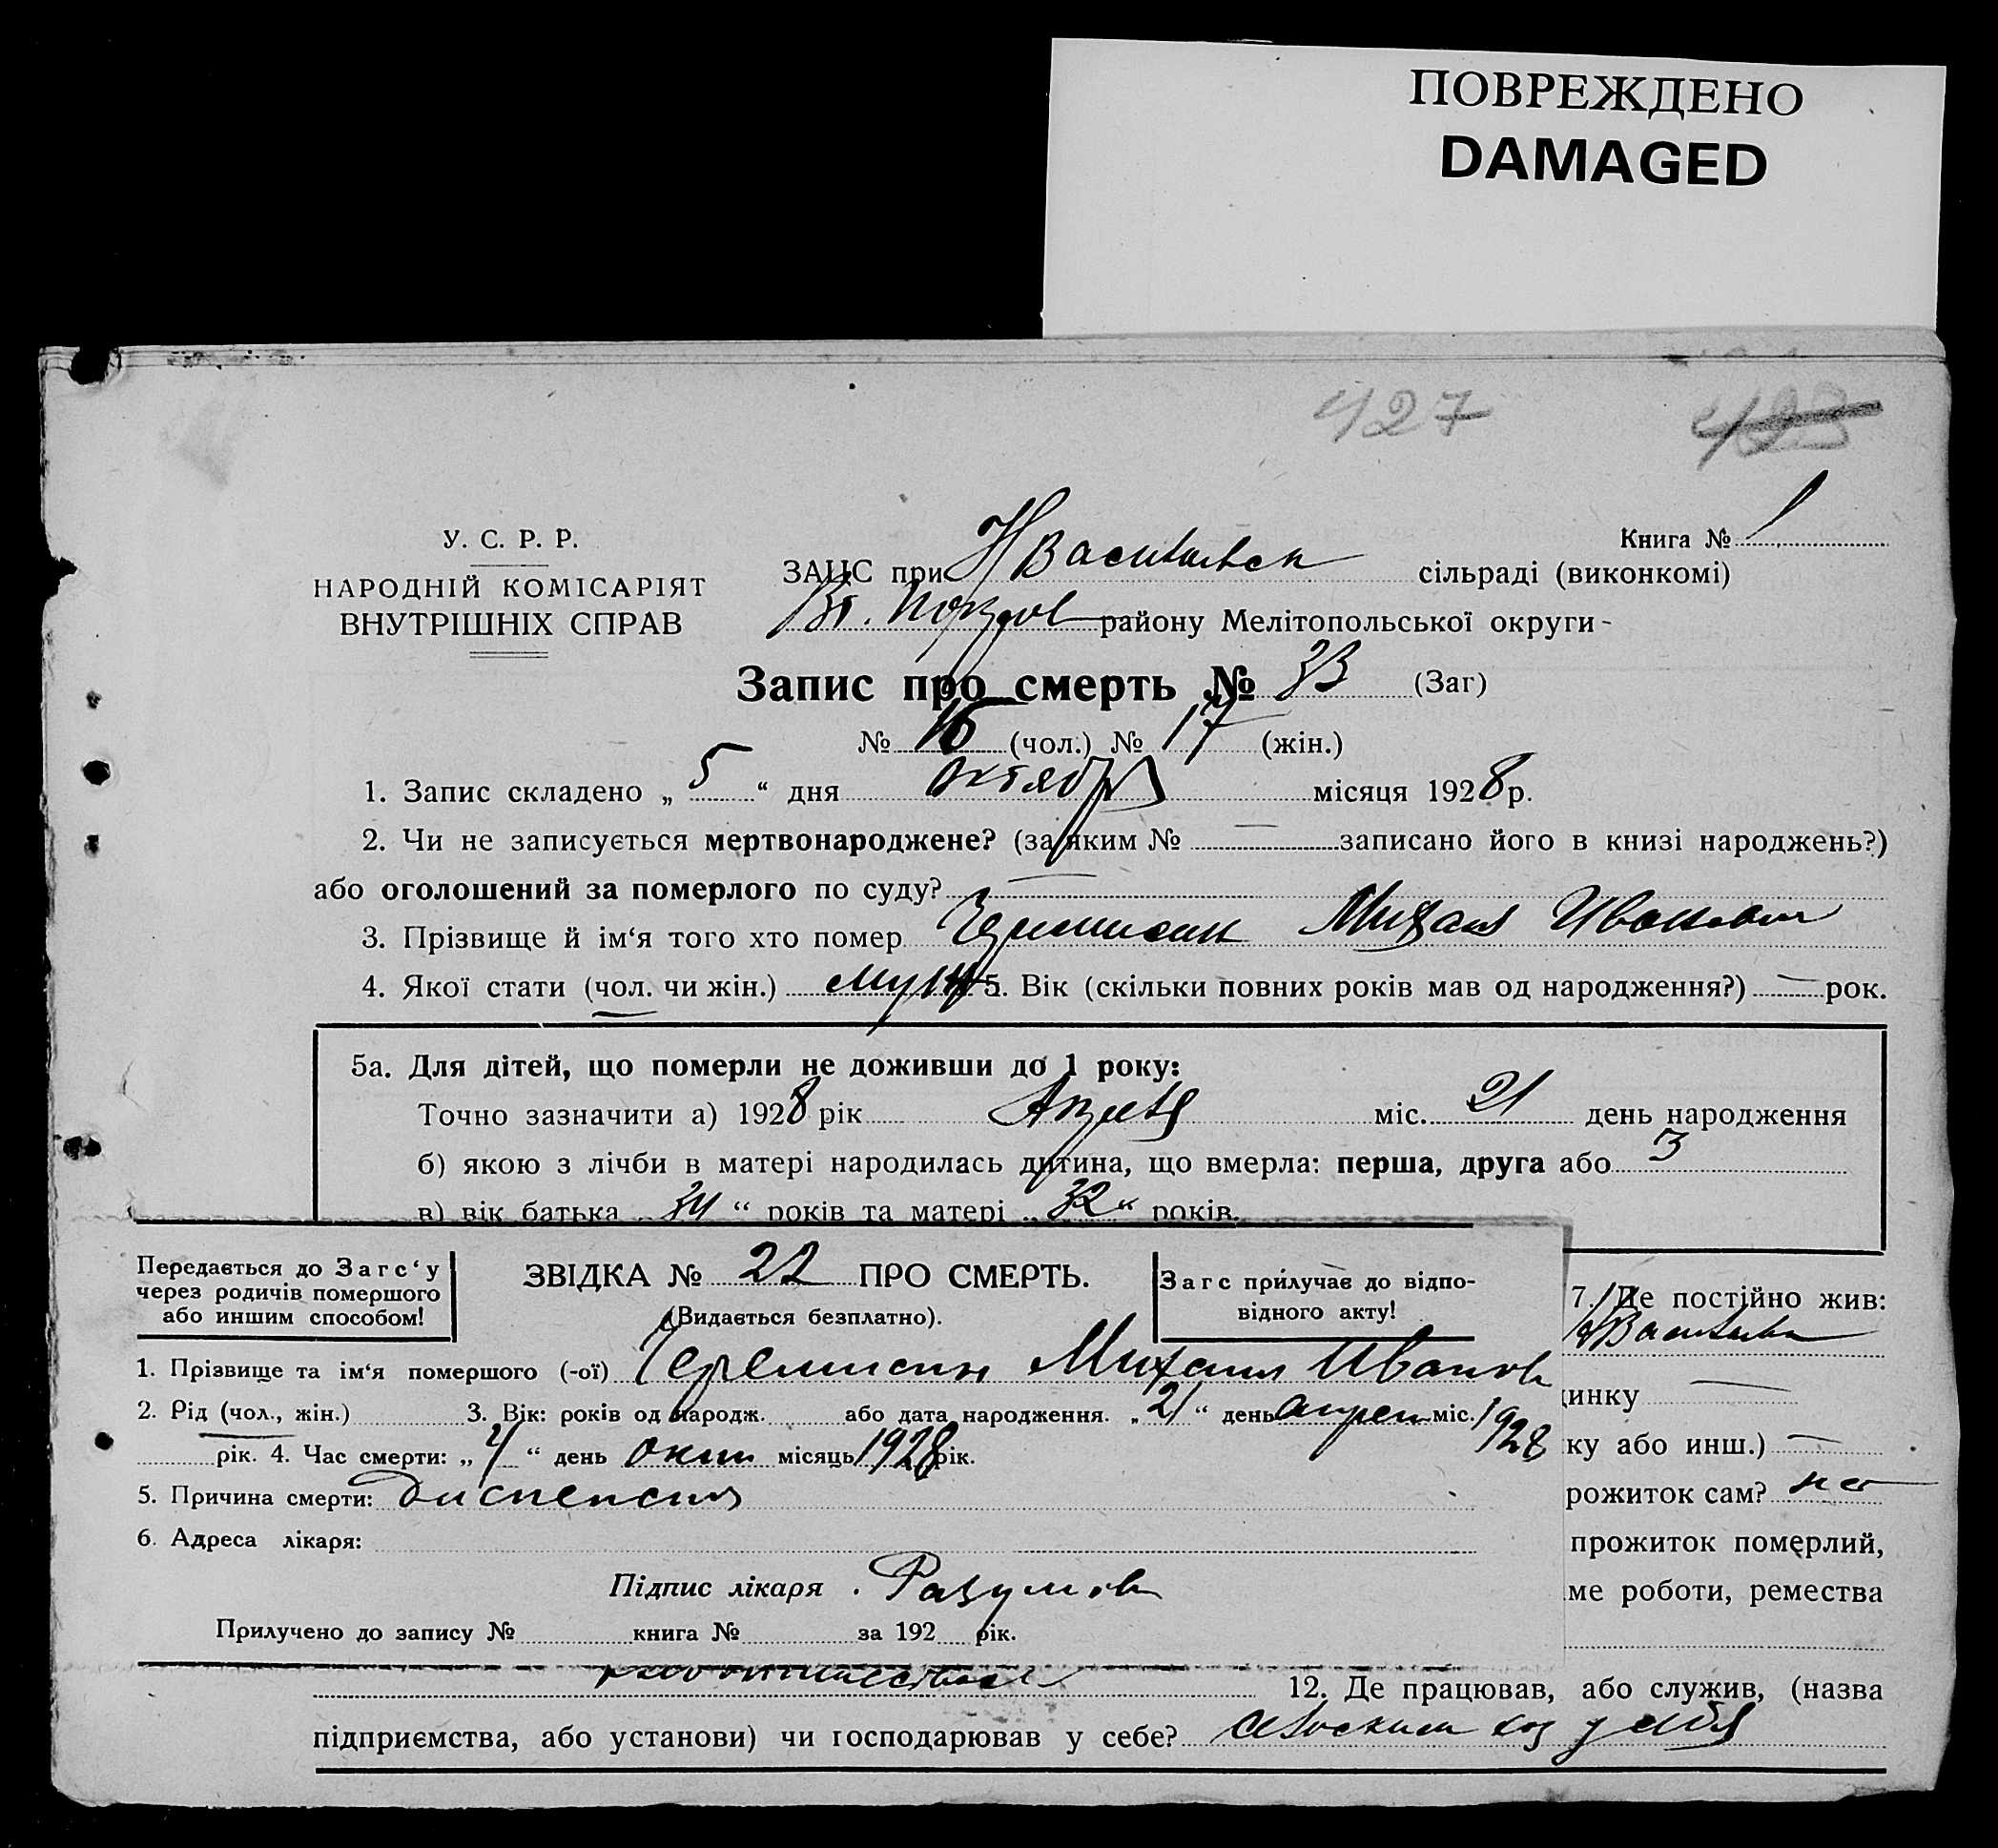 ПОВРЕЖДЕНО
DAMAGED
427 423
У. С. Р. Р.
НАРОДНІЙ КОМІСАРІЯТ
ВНУТРІШНІХ СПРАВ
Книга № 1
ЗАЦС при Н Васильевск сільраді (виконкомі)
району Мелітопольської округи-
Запис про смерть № 33 (Заг)
№ 16 (чол.) № 17 (жін.)
1. Запис складено „ 5 “ дня октября місяця 1928 р.
2. Чи не записується мертвонароджене? (за яким № — записано його в книзі народжень?)
або оголошений за померлого по суду? —
3. Прізвище й ім‘я того хто помер Черемисин Михаил Иванович
4. Якої стати (чол. чи жін.) муж 5. Вік (скільки повних років мав од народження?) — рок.
5а. Для дітей, що померли не доживши до 1 року:
Точно зазначити а) 1928 рік Апреля міс. 21 день народження
б) якою з лічби в матері народилась дитина, що вмерла: перша, друга або 3
в) вік батька „ 34 “ років та матері „ 32 “ років.
Передається до Загс‘у
через родичів помершого
або иншим способом!
ЗВІДКА № 22 ПРО СМЕРТЬ.
(Видається безплатно).
Загс прилучає до відпо-
відного акту!
7. Де постійно жив:
Н Васильевка
1. Прізвище та ім‘я помершого (-ої) Черемисин Михаил Иванов
динку —
2. Рід (чол., жін.) 3. Вік: років од народж. або дата народження. „ 21 “ день апрел міс. 1928
рік. 4. Час смерти: „ 4 “ день окт місяць 1928 рік.
ку або инш.) —
5. Причина смерти: диспепсия
рожиток сам? на
6. Адреса лікаря:
прожиток померлий,
Підпис лікаря Разумов
ме роботи, ремества
Прилучено до запису № книга № за 192 рік.
12. Де працював, або служив, (назва
підприємства, або установи) чи господарював у себе? в своем хоз у себя